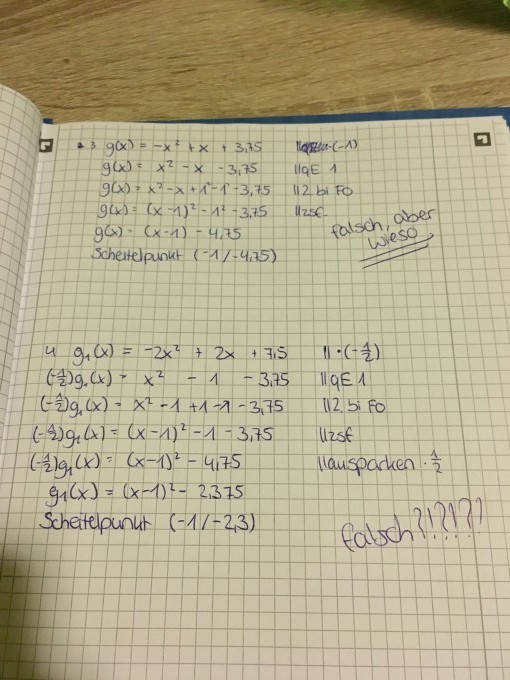 3 g(x) = -x² + x + 3,75 || ·(-1)
g(x) = x² - x - 3,75 ||qE 1
g(x) = x² - x + 1² - 1² - 3,75 ||2. bi Fo
g(x) = (x-1)² - 1² - 3,75 ||zsf.
g(x) = (x-1) - 4,75
Scheitelpunkt (-1/-4,75)
falsch, aber
wieso
4 g₁(x) = -2x² + 2x + 7,5 || ·(-1/2)
(-1/2)g₁(x) = x² - 1 - 3,75 ||qE 1
(-1/2)g₁(x) = x² - 1 + 1 - 1 - 3,75 ||2. bi Fo
(-1/2)g₁(x) = (x-1)² - 1 - 3,75 ||zsf
(-1/2)g₁(x) = (x-1)² - 4,75 ||ausparken · 1/2
g₁(x) = (x-1)² - 2,375
Scheitelpunkt (-1/-2,3)
falsch?!?!?!